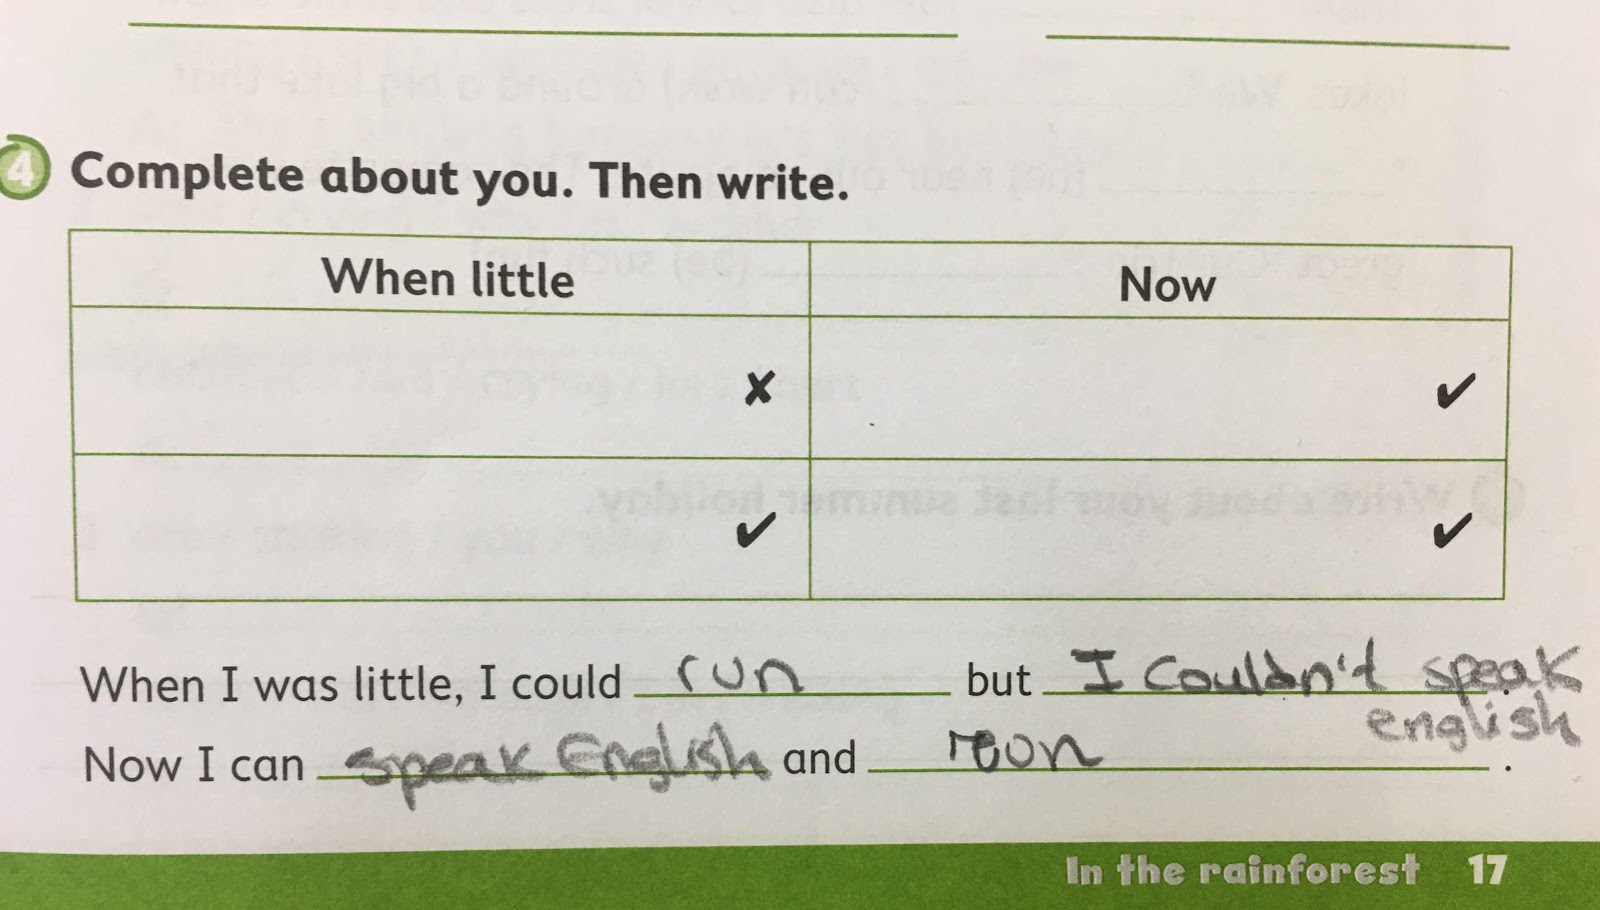 4 Complete about you. Then write.
When little Now
✘ ✔
✔ ✔
When I was little, I could run but I couldn't speak
english
Now I can speak English and roon.
In the rainforest 17